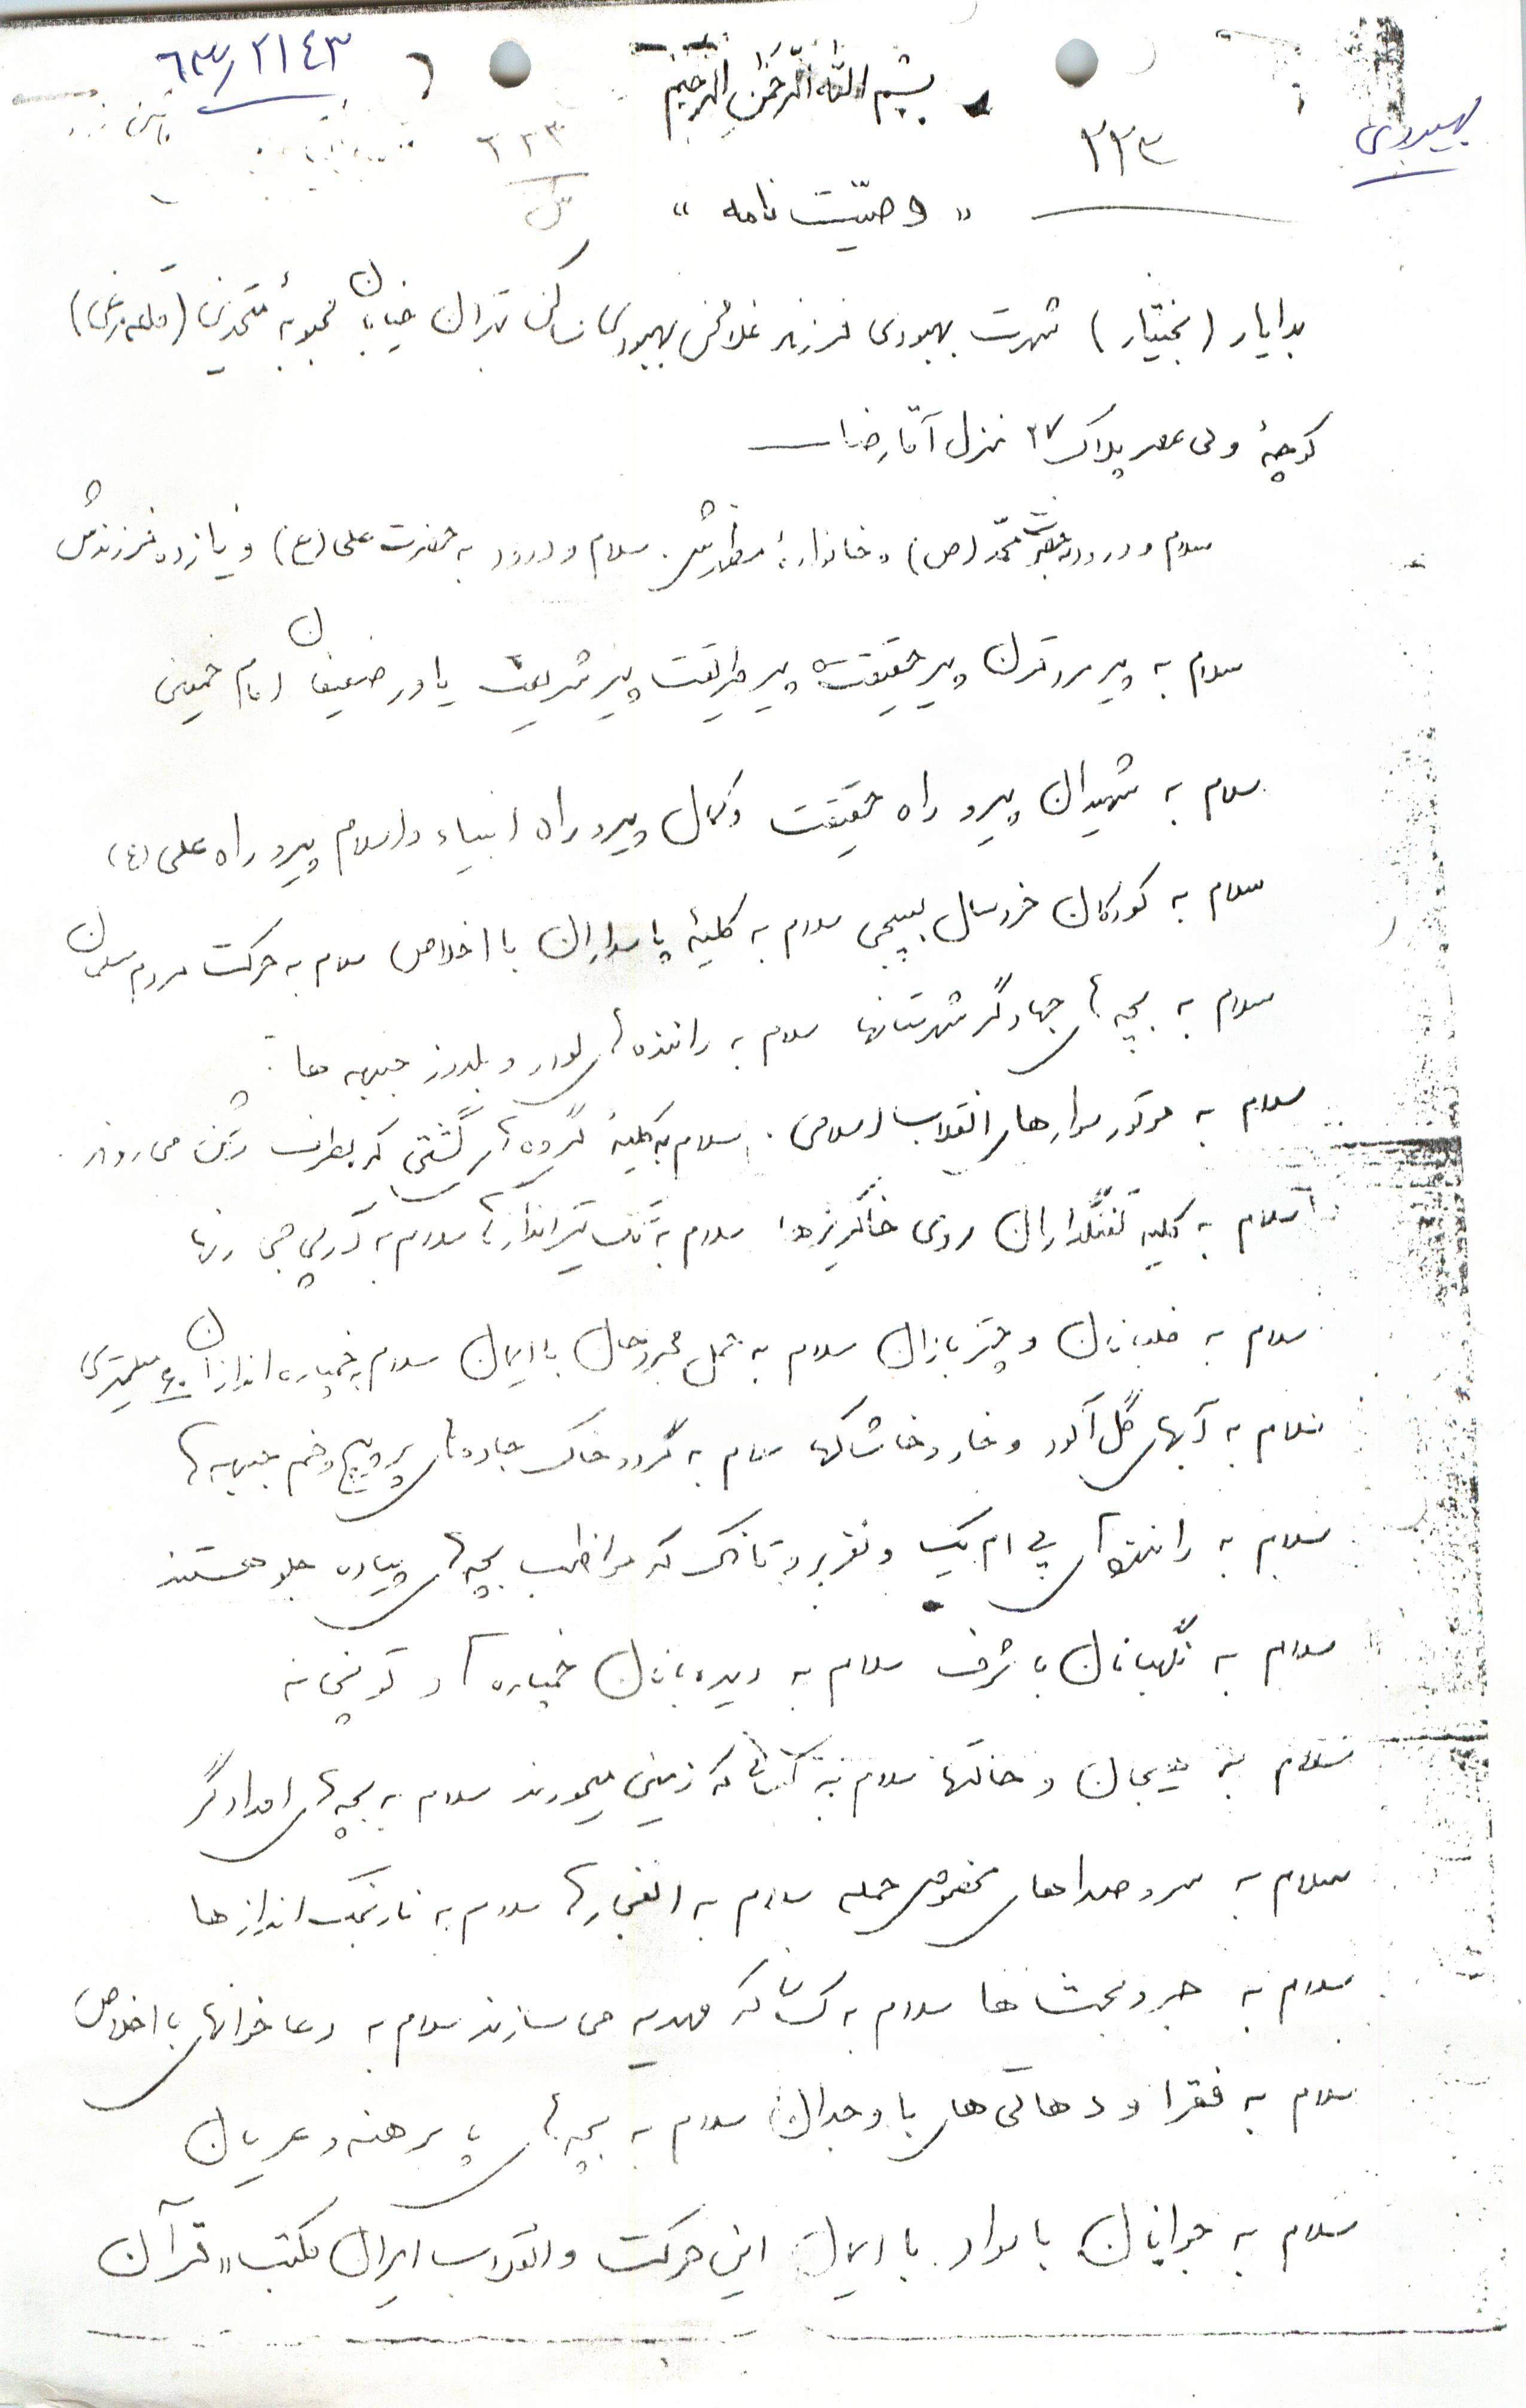 ۶۳/۲۱۴۳
بسم الله الرحمن الرحیم
بهبودی
۲۲۳
۲۲۳
« وصیّت نامه »
بدایار (بختیار) شهرت بهبودی فرزند غلامحسن بهبودی ساکن تهران خیابان محبوبۀ متحدین (قلعه مرغی)
کوچۀ ولی عصر پلاک ۲۷ منزل آقا رضا
سلام و درود به حضرت محمّد (ص) و خانوادۀ مطهرش. سلام و درود به حضرت علی (ع) و یازده فرزندش
سلام به پیر مرد قرن پیر حقیقت پیر طریقت پیر شریعت یاور ضعیفان امام خمینی
سلام به شهیدان پیرو راه حقیقت و کمال پیرو راه انبیاء و اسلام پیرو راه علی (ع)
سلام به کودکان خردسال بسیجی سلام به کلیۀ پاسداران با اخلاص سلام به حرکت مردم مسلمان
سلام به بچه های جهادگر شهرستانها سلام به راننده های لودر و بلدوزر جبهه ها.
سلام به موتور سوارهای انقلاب اسلامی. سلام به کلیۀ گروه های گشتی که بطرف دشمن می روند.
سلام به کلیه تفنگداران روی خاکریزها سلام به تک تیراندازها سلام به آرپی جی زنها
سلام به خلبانان و چتربازان سلام به حمل مجروحان با ایمان سلام به خمپاره اندازان ۶۰ میلیمتری
سلام به آبهای گل آلود و خار و خاشاکها سلام به گرد و خاک جاده های پر پیچ و خم جبهه ها
سلام به راننده های پی ام پی و نفربر و تانک که مواظب بچه های پیاده جلو هستند
سلام به نگهبانان با شرف سلام به دیده بانان خمپاره ها و توپخانه
سلام به هیجان و حالتها سلام به کسانی که زمین میخورند سلام به بچه های امدادگر
سلام به سر و صداهای مخصوص حمله سلام به انفجارها سلام به نارنجک اندازها
سلام به جر و بحث ها سلام به کسانی که مهدیه می سازند سلام به دعا خوانهای با اخلاص
سلام به فقرا و دهاتی های با وجدان سلام به بچه های پا برهنه و عریان
سلام به جوانان با سواد با ایمان این حرکت و انقلاب ایران مکتب «قرآن